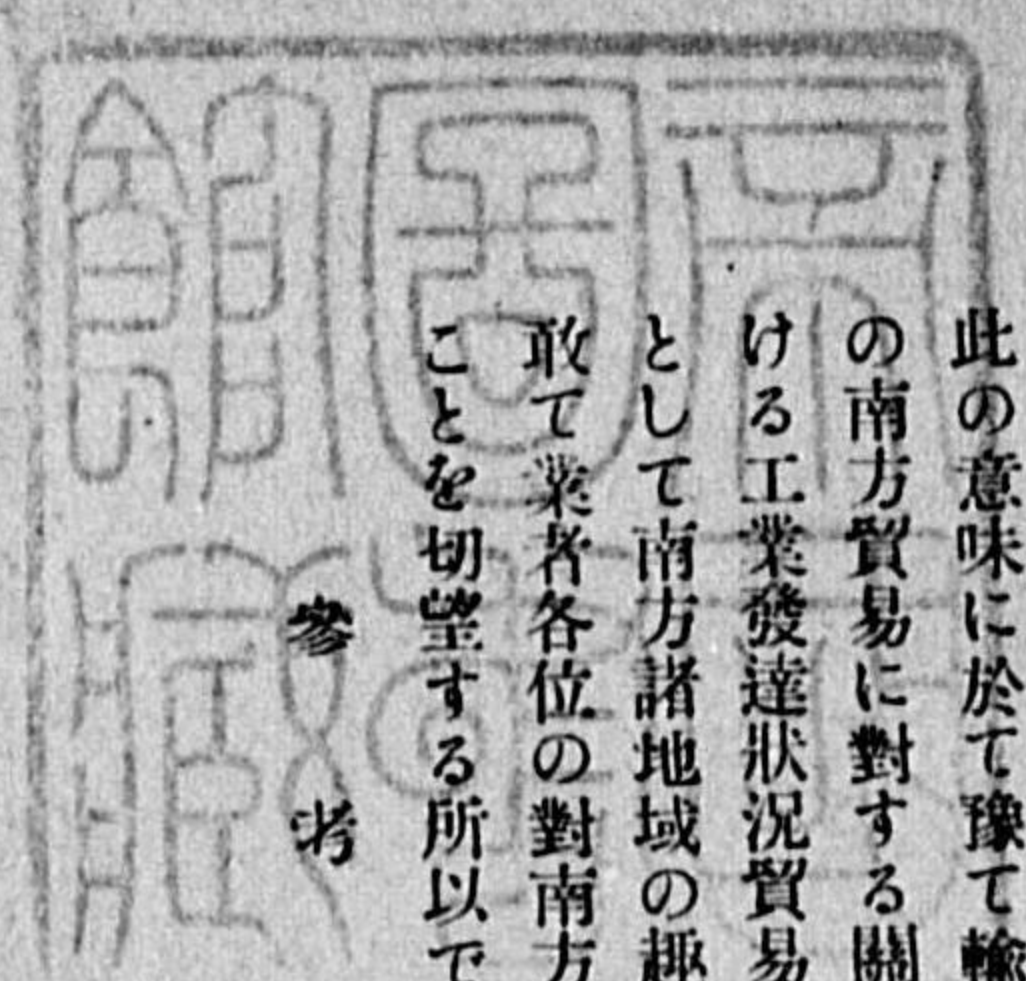 此の意味に於て豫て輸
の南方貿易に對する關
ける工業發達狀況貿易
として南方諸地域の趣
敢て業者各位の對南方
ことを切望する所以で
參考
帝圖
館藏